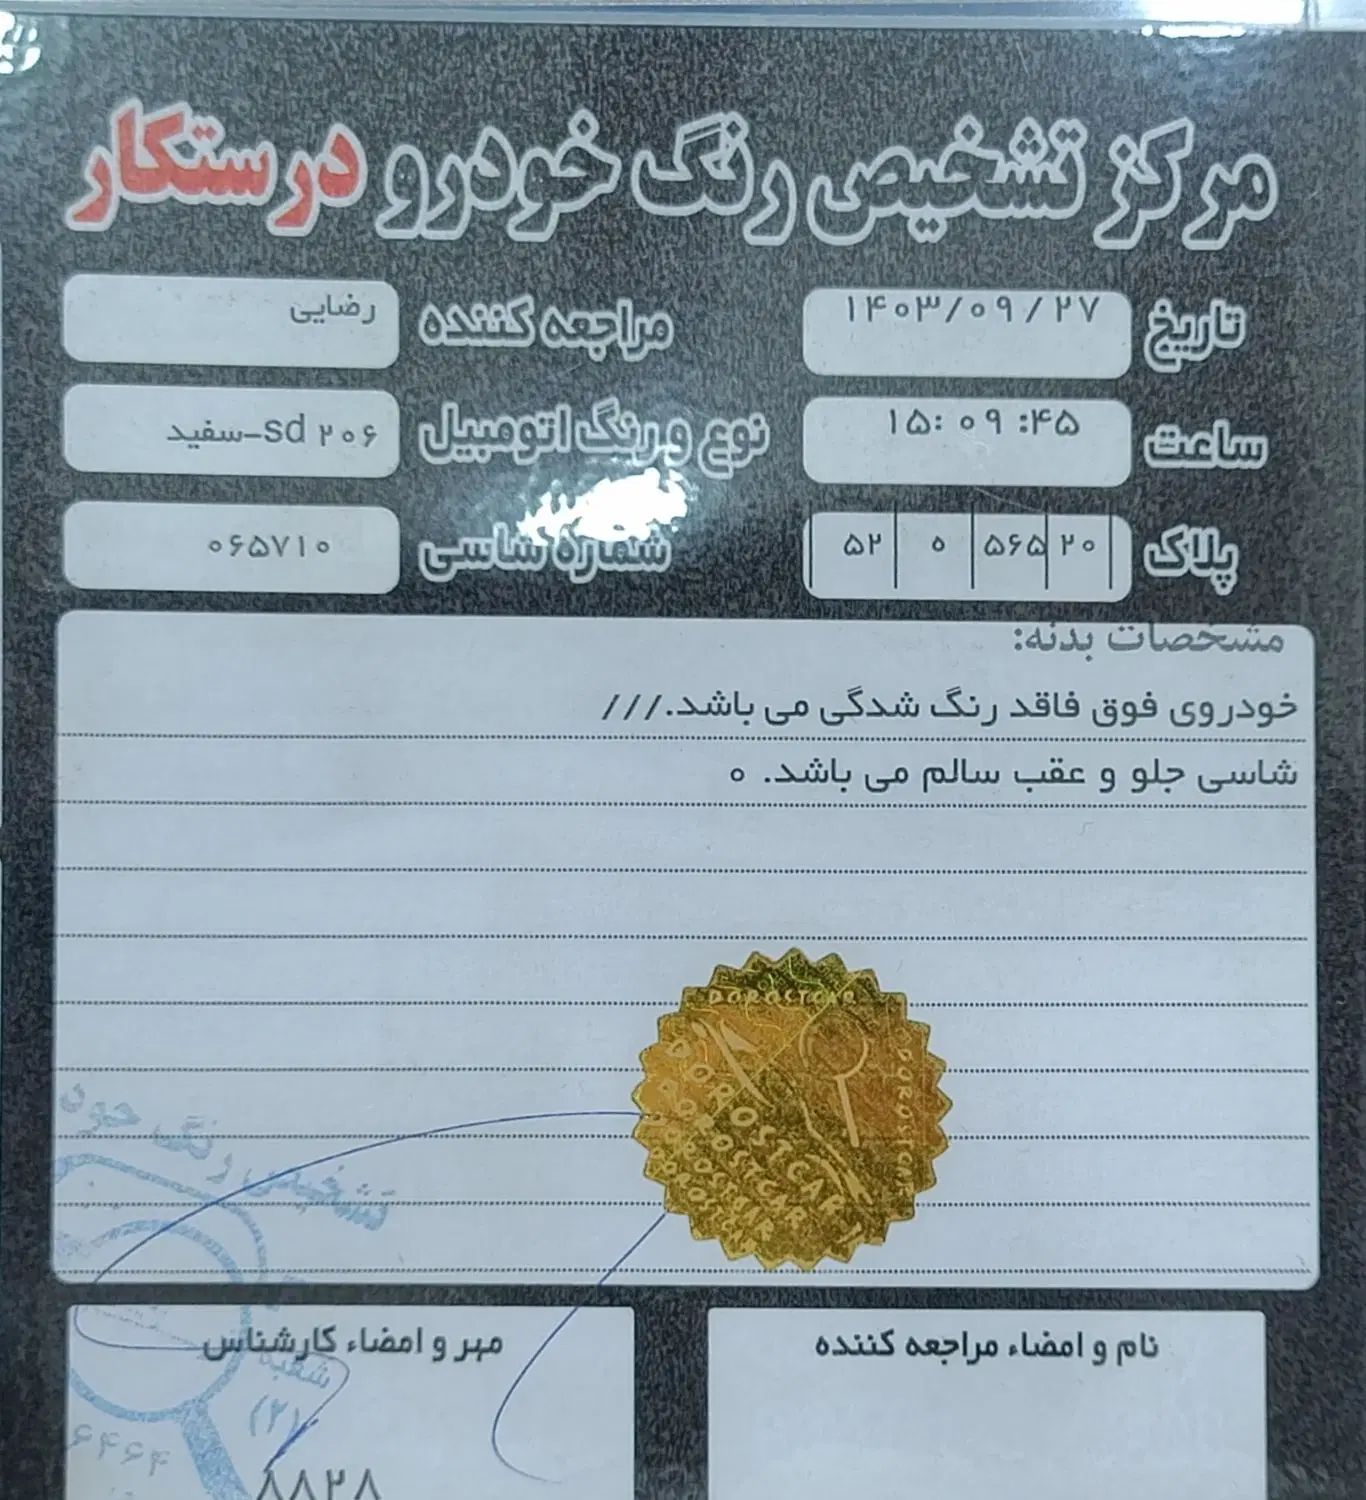 مرکز تشخیص رنگ خودرو درستکار
تاریخ ۱۴۰۳/۰۹/۲۷ مراجعه کننده رضایی
ساعت ۱۵:۰۹:۴۵ نوع و رنگ اتومبیل ۲۰۶ sd-سفید
پلاک ۵۲ ه ۵۶۵ ۲۰ شماره شاسی ۰۶۵۷۱۰
مشخصات بدنه:
خودروی فوق فاقد رنگ شدگی می باشد.///
شاسی جلو و عقب سالم می باشد. ه
DOROSTCAR
DOROSTCAR
DOROSTCAR
DOROSTCAR
تشخیص رنگ خود
نام و امضاء مراجعه کننده
مهر و امضاء کارشناس
شعبه
(۲)
۶۴۶۴
۸۸۲۸